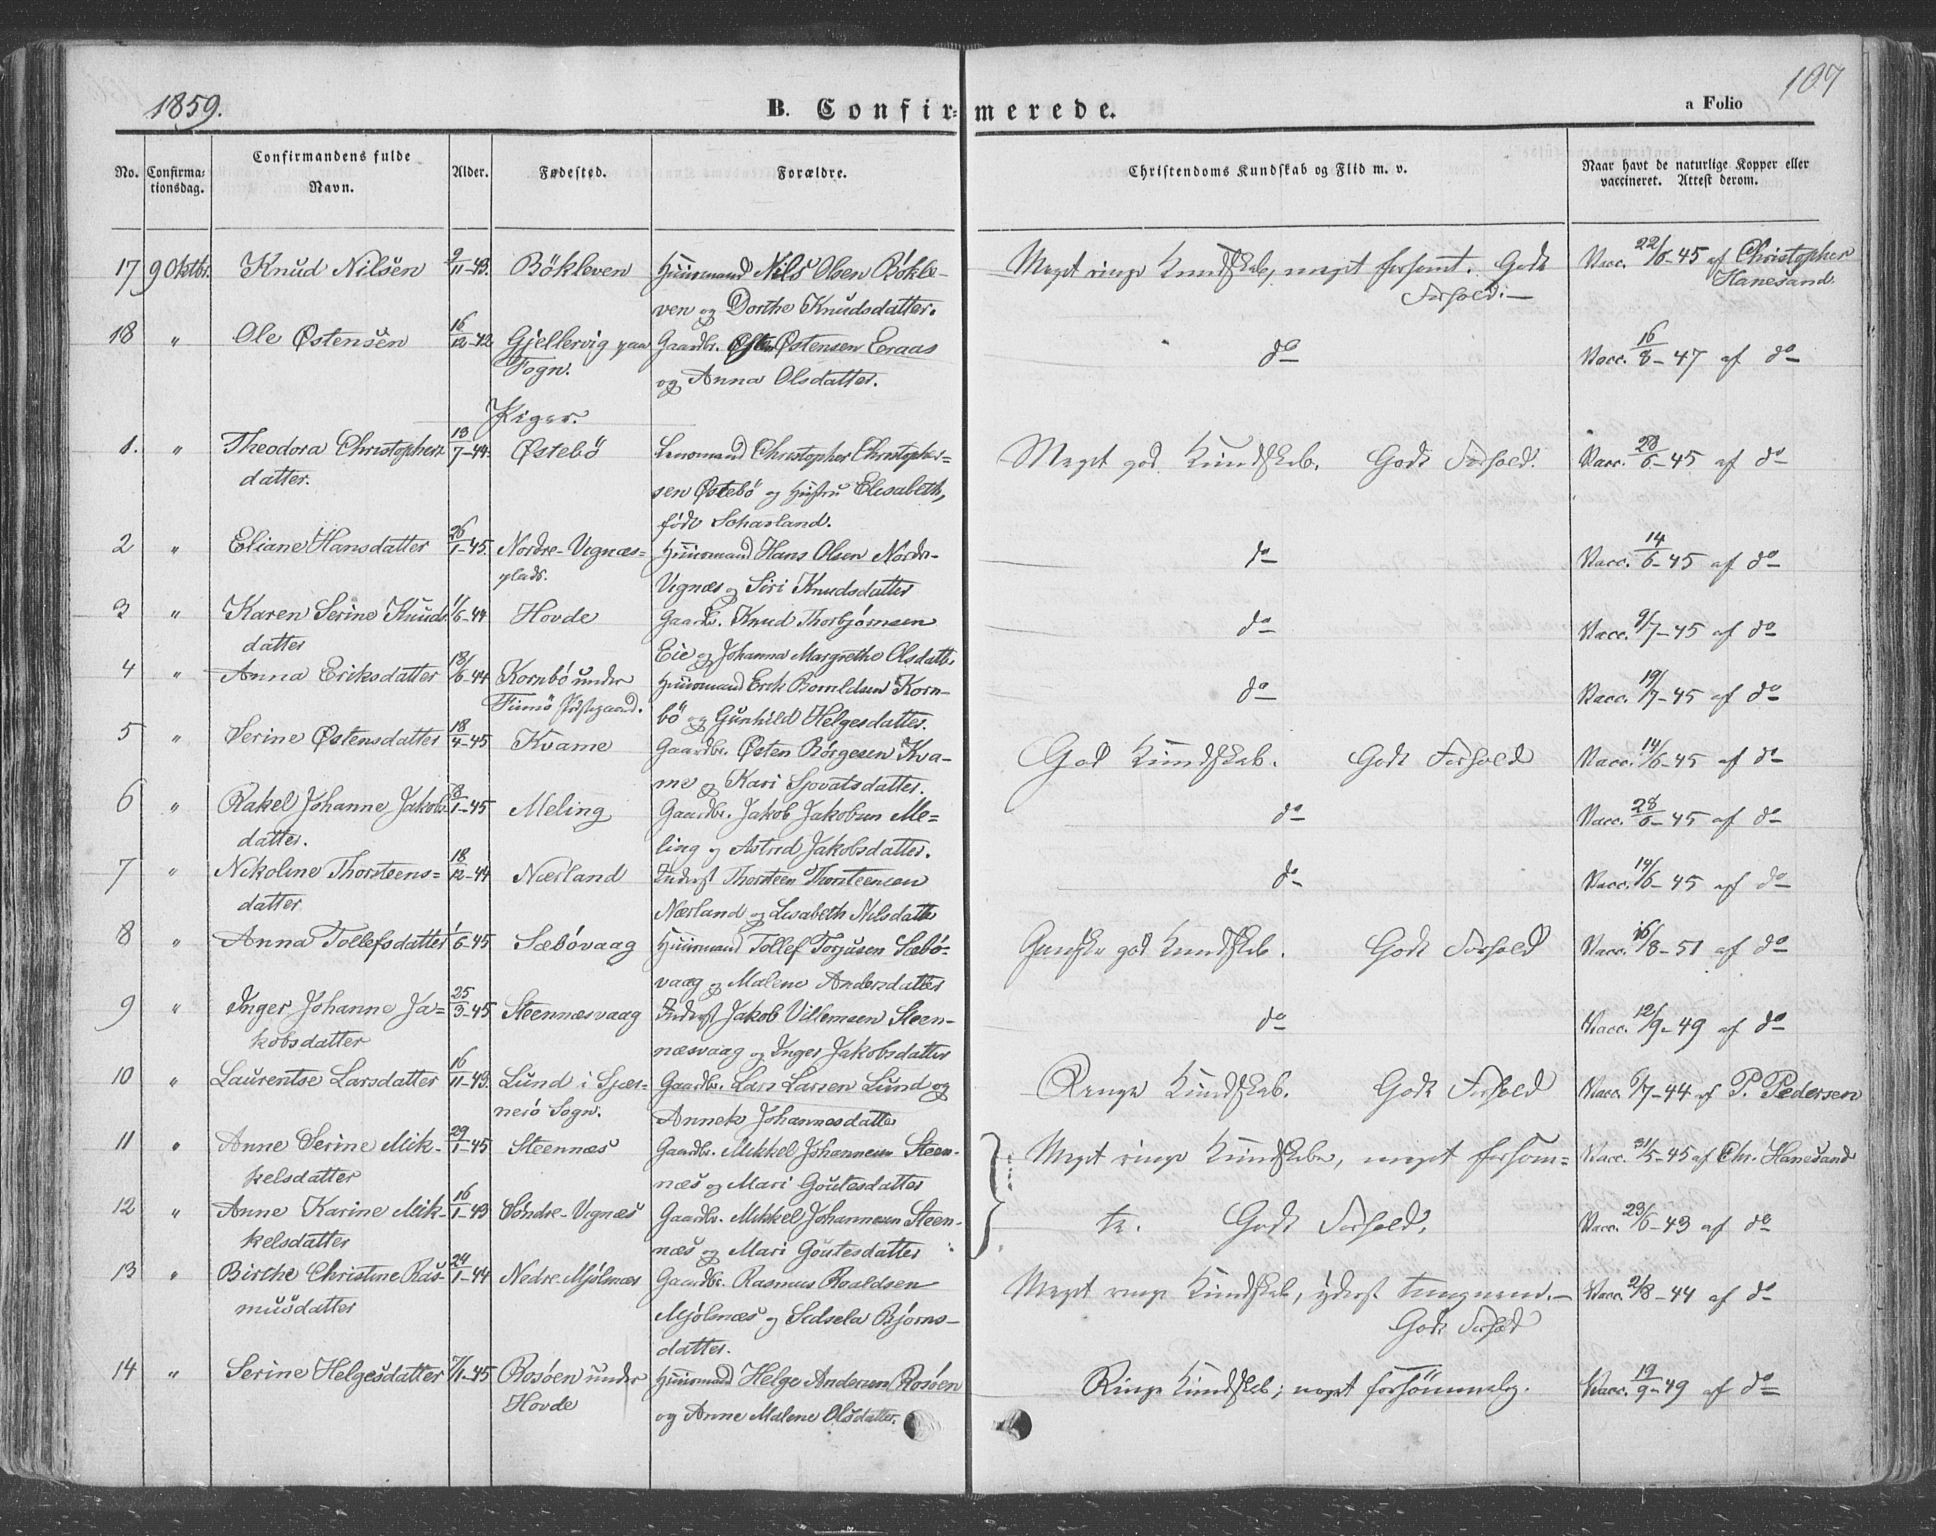 1859. B. Confirmerede. a Folio 107
No. Confirmationsdag. Confirmandens fulde Navn. Alder. Fødested. Forældre. Christendoms Kundskab og Flid m. v. Naar havt de naturlige Kopper eller vaccineret. Attest derom.
17 9 Oktbr. Knud Nilsen 2/11-43. Bökleven Huusmand Nils Olsen Bökle- Meget ringe Kundskab, meget forsømt. Godt Vacc. 22/6-45 af Christopher
ven og Dorthe Knudsdatter. Forhold.— Hanesand.
18 " Ole Østensen 16/12-42 Gjellervig paa Gaardbr. Østen Østensen Eraas do Vacc. 16/8-47 af do
Fogn. og Anna Olsdatter.
Piger.
1. " Theodora Christophers- 13/7-44. Østebö Lensmand Christopher Christopher= Meget god Kundskab. Godt Forhold. Vacc. 28/6-45 af do
datter. sen Østebö og Hustru Elisabeth,
født Scharland.
2 " Eliane Hansdatter 26/1-45. Nordre-Vignæs= Huusmand Hans Olsen Nordre- do Vacc. 14/6-45 af do
plads. Vignæs og Siri Knudsdatter
3 " Karen Serine Knuds- 11/6-44 Hovde Gaardbr. Knud Thorbjørnsen do Vacc. 9/7-45 af do
datter Eie og Johanna Margrethe Olsdatter
4 " Anna Eriksdatter 18/6-44 Kornbö under Huusmand Erik Korn- do Vacc. 19/7-45 af do
Finnö Præstegaard. bö og Gunhild Helgesdatter.
5 " Serine Østensdatter 18/4-45 Kvame Gaardbr. Østen Börgesen Kva- God Kundskab. Godt Forhold Vacc. 14/6-45 af do
me og Kari Sjovatsdatter.
6 " Rakel Johanne Jakobs- 8/1-45 Meling Gaardbr. Jakob Jakobsen Me= do Vacc. 28/6-45 af do
datter. ling og Astrid Jakobsdatter.
7 " Nikoline Thorsteens= 18/12-44 Nærland Inderst Thorsteen Thorsteensen do Vacc. 14/6-45 af do
datter Nærland og Lisabeth Nilsdatter
8 " Anna Tollefsdatter 1/6-45 Sæbövaag Huusmand Tollef Torjusen Sæbö- Ganske god Kundskab. Godt Forhold Vacc. 16/8-51 af do
vaag og Malene Andersdatter
9 " Inger Johanne Ja= 25/3-45 Steennæsvaag Inderst Jakob Villemsen Steen- do Vacc. 12/9-49 af do
kobsdatter næsvaag og Inger Jakobsdatter
10 " Laurentse Larsdatter 16/11-43. Lund i Sjær- Gaardbr. Lars Larsen Lund og Ringe Kundskab. Godt Forhold Vacc. 6/7-44 af P. Pedersen
nerö Sogn. Johannesdatter
11 " Anne Serine Mik- 29/1-45 Steennæs Gaardbr. Mikkel Johannesen Steen- Meget ringe Kundskaber, meget forsøm= Vacc. 31/5-45 af Chr. Hanesand
kelsdatter næs og Mari Goutesdatter
12 " Anne Karine Mik- 16/1-43 Söndre-Vignæs Gaardbr. Mikkel Johannesen Steen- te. Godt Forhold. Vacc. 23/6-43 af do
kelsdatter næs og Mari Goutesdatter
13 " Birthe Christine Ras- 24/1-44 Nedre Mjölsnæs Gaardbr. Rasmus Roaldsen Meget ringe Kundskab, yderst tungnem.— Vacc. 2/8-44 af do
musdatter Mjölsnæs og Sidsela Bjørns- Godt Forhold
datter.
14 " Serine Helgesdatter 7/1-45 Rosöen under Huusmand Helge Andersen Rosöen Ringe Kundskab; meget forsömmelig. Vacc. 19/9-49 af do
Hovde og Anne Malene Olsdatter.